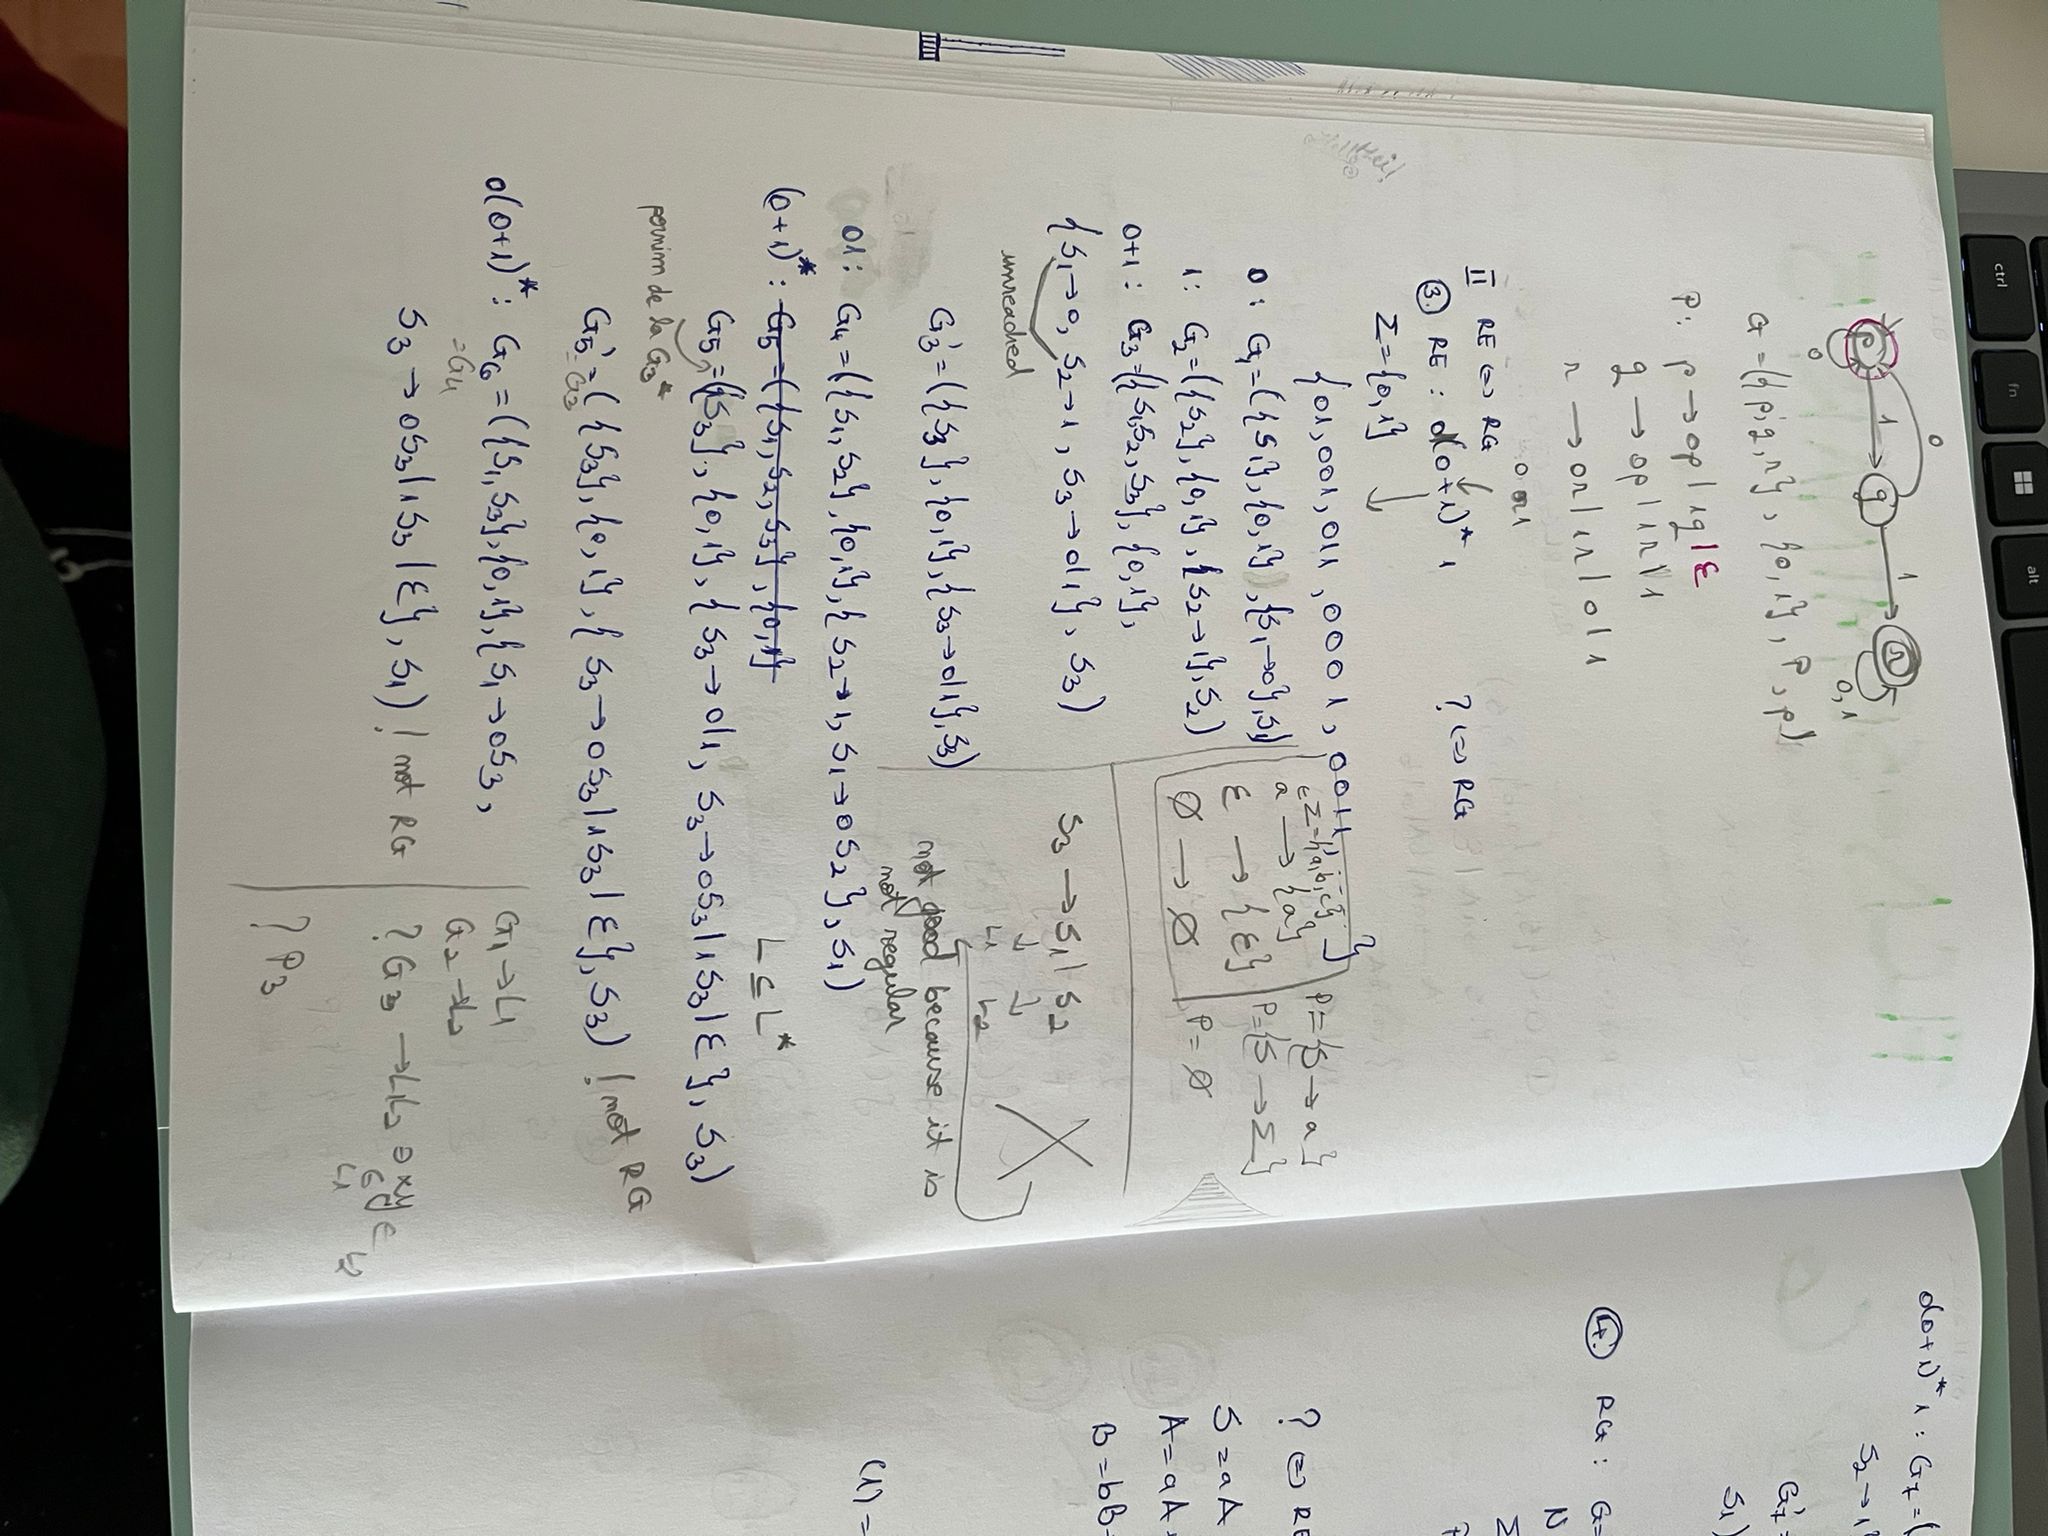 ctrl
fn
alt
0
p
1
q
1
r
0
0,1
G=({p,q,r}, {0,1}, P, p)
P: p → 0p | 1q | ε
q → 0p | 1r | 1
r → 0r | 1r | 0 | 1
II RE <=> RG
③. RE: 0(0+1)* 1
? <=> RG
Σ={0,1}
{01,001,011,0001,0011, ...}
∈Σ={a,b,c}
a → {a}
P={S → a}
ε → {ε}
P={S → Σ}
∅ → ∅
P=∅
0: G1=({S1},{0,1},{S1→0},S1)
1: G2=({S2},{0,1},{S2→1},S2)
0+1: G3=({S1,S2,S3},{0,1},
{S1→0, S2→1, S3→0|1}, S3)
unreached
S3 → S1 | S2
↓ ↓
L1 L2
not good because it is
not regular
G3'=({S3},{0,1},{S3→0|1},S3)
01: G4=({S1,S2},{0,1},{S2→1,S1→0S2},S1)
(0+1)*: G5=({S1,S2,S3},{0,1}
L⊆L*
G5=({S3},{0,1},{S3→0|1, S3→0S3|1S3|ε},S3)
pornim de la G3*
G5'=({S3},{0,1},{S3→0S3|1S3|ε},S3) ! not RG
=G3
0(0+1)*: G6=({S1,S3},{0,1},{S1→0S3,
=G4
S3→0S3|1S3|ε},S1) ! not RG
G1→L1
G2→L2
? G3 →L1L2 ∋ xy ∈ L2
∈
L1
? P3
0(0+1)*1: G7=(
S2→1
G7'=
S1)
④. RG: G=
N
Σ
P
? <=> RE
S=aA
A=aA
B=bB
(1)=